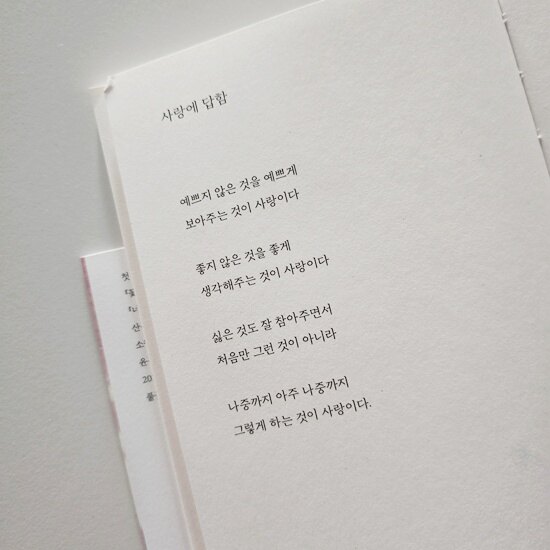 사랑에 답함
예쁘지 않은 것을 예쁘게
보아주는 것이 사랑이다
좋지 않은 것을 좋게
생각해주는 것이 사랑이다
싫은 것도 잘 참아주면서
처음만 그런 것이 아니라
나중까지 아주 나중까지
그렇게 하는 것이 사랑이다.
첫
산
소
윤
20